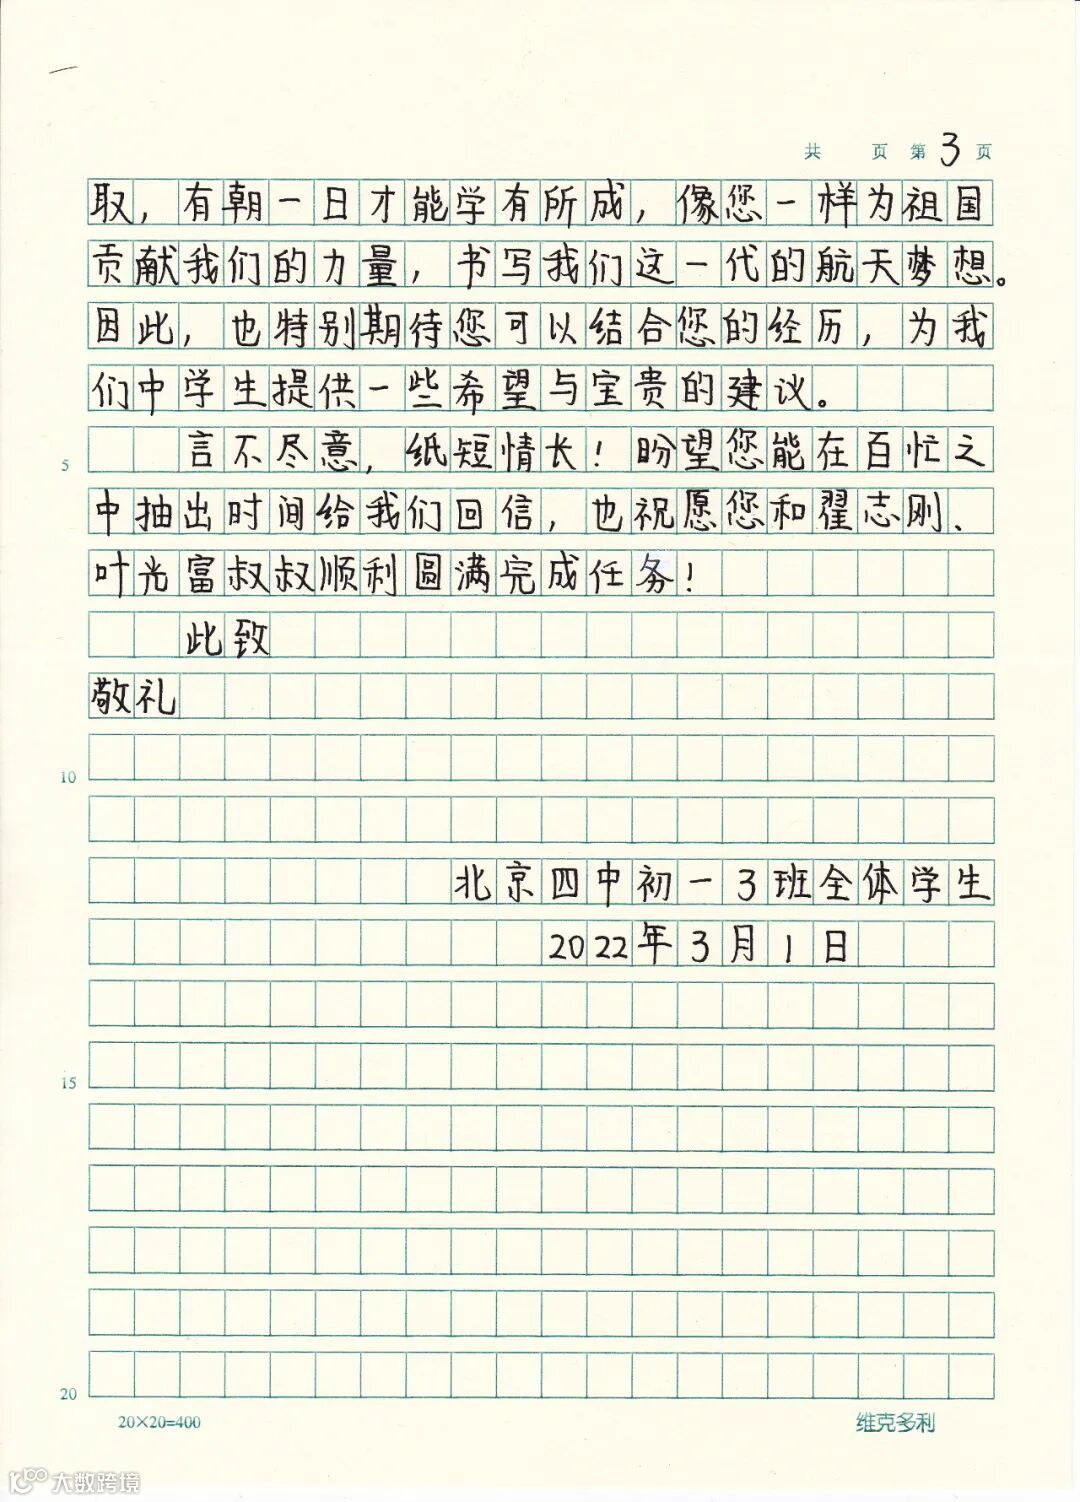 共 页 第 3 页
取，有朝一日才能学有所成，像您一样为祖国
贡献我们的力量，书写我们这一代的航天梦想。
因此，也特别期待您可以结合您的经历，为我
们中学生提供一些希望与宝贵的建议。
5 言不尽意，纸短情长！盼望您能在百忙之
中抽出时间给我们回信，也祝愿您和翟志刚、
叶光富叔叔顺利圆满完成任务！
此致
敬礼
10
北京四中初一3班全体学生
2022年3月1日
15
20
20×20=400 维克多利
大数跨境